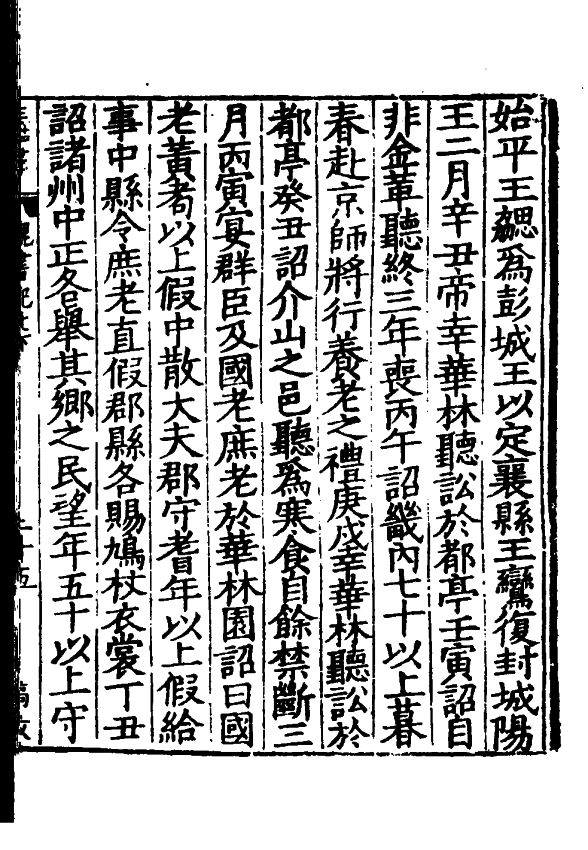 始平王勰爲彭城王以定襄縣王鸞復封城陽
王二月辛丑帝幸華林聽訟於都亭壬寅詔自
非金革聽終三年喪丙午詔畿內七十以上暮
春赴京師將行養老之禮庚戍幸華林聽訟於
都亭癸丑詔介山之邑聽爲寒食自餘禁斷三
月丙寅宴群臣及國老庶老於華林園詔曰國
老黃耇以上假中散大夫郡守耆年以上假給
事中縣令庶老直假郡縣各賜鳩杖衣裳丁丑
詔諸州中正各舉其鄉之民望年五十以上守